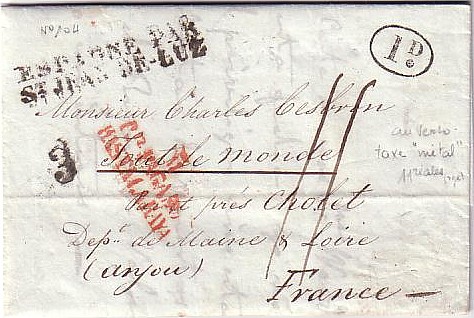 No 104
ESPAGNE PAR
ST JEAN-DE-LUZ
1 D.
Monsieur Charles Cesbron
3
Tout le monde
près Cholet
Dept. de Maine & Loire
(anjou)
France
11
au verso
taxe "métal"
11 reales